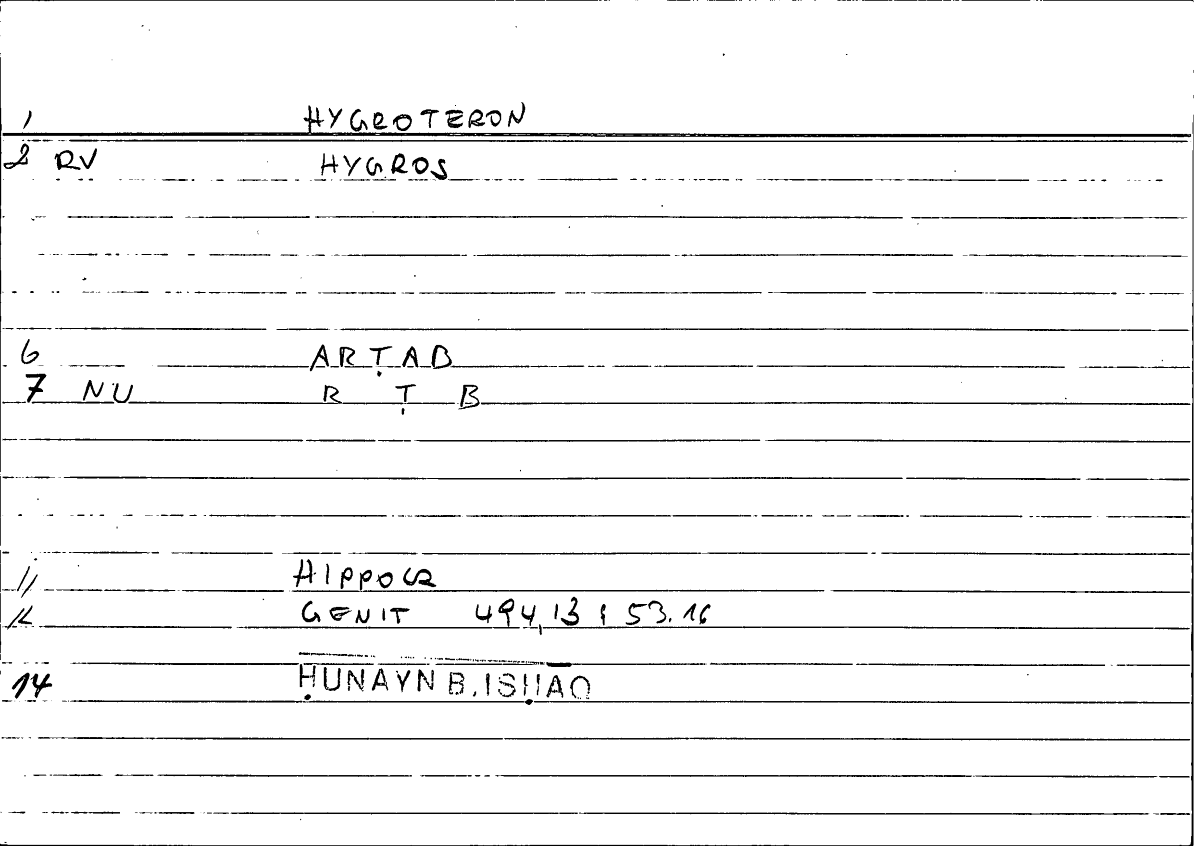 1 HYGROTERON
2 RV HYGROS
6 ARṬAB
7 NU R Ṭ B
11 HIPPOCR
12 GENIT 494,13 ; 53.16
14 ḤUNAYN B. ISḤĀQ